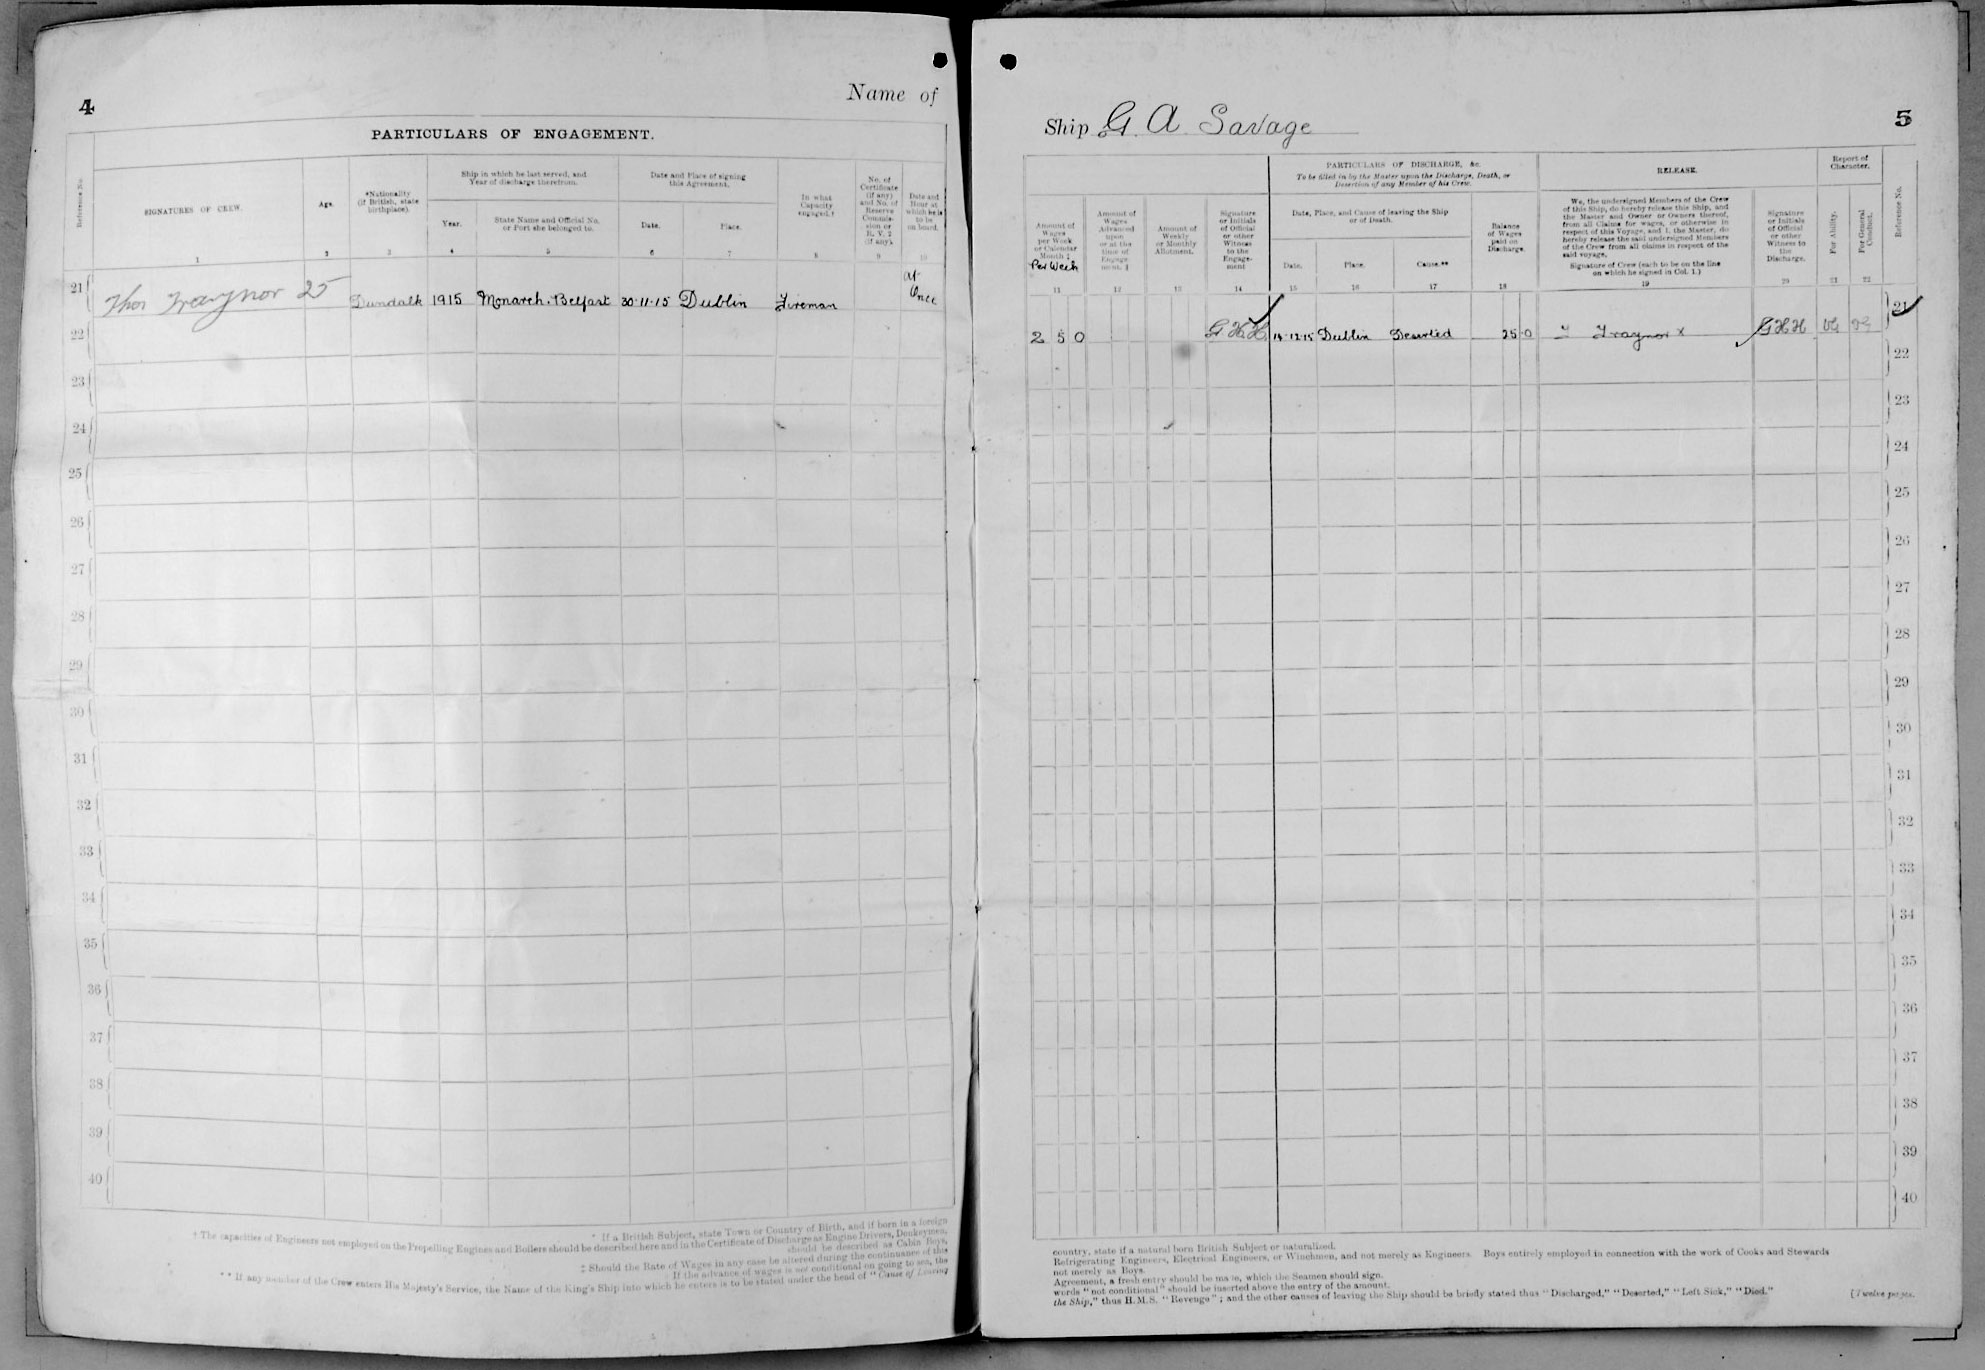 4
Name of
PARTICULARS OF ENGAGEMENT.
Reference No.
SIGNATURES OF CREW.
Age.
*Nationality
(if British, state
birthplace).
Ship in which he last served, and
Year of discharge therefrom.
Year.
State Name and Official No.
or Port she belonged to.
Date and Place of signing
this Agreement.
Date.
Place.
In what
Capacity
engaged.†
No. of
Certificate
(if any)
and No. of
Reserve
Commis-
sion or
R. V. 2
(if any).
Date and
Hour at
which he is
to be
on board.
1 2 3 4 5 6 7 8 9 10
21 Thos Traynor 25 Dundalk 1915 Monarch. Belfast 30-11-15 Dublin Fireman At Once
22
23
24
25
26
27
28
29
30
31
32
33
34
35
36
37
38
39
40
* If a British Subject, state Town or Country of Birth, and if born in a foreign
† The capacities of Engineers not employed on the Propelling Engines and Boilers should be described here and in the Certificate of Discharge as Engine Drivers, Donkeymen,
should be described as Cabin Boys,
‡ Should the Rate of Wages in any case be altered during the continuance of this
If the advance of wages is not conditional on going to sea, the
** If any member of the Crew enters His Majesty's Service, the Name of the King's Ship into which he enters is to be stated under the head of "Cause of Leaving
Ship G. A. Savage
5
Amount of
Wages
per Week
or Calendar
Month ‡
Per Week
Amount of
Wages
Advanced
upon
or at the
time of
Engage-
ment. ‖
Amount of
Weekly
or Monthly
Allotment.
Signature
or Initials
of Official
or other
Witness
to the
Engage-
ment
PARTICULARS OF DISCHARGE, &c.
To be filled in by the Master upon the Discharge, Death, or
Desertion of any Member of his Crew.
Date, Place, and Cause of leaving the Ship
or of Death.
Date.
Place.
Cause.**
Balance
of Wages
paid on
Discharge.
RELEASE.
We, the undersigned Members of the Crew
of this Ship, do hereby release this Ship, and
the Master and Owner or Owners thereof,
from all Claims for wages, or otherwise in
respect of this Voyage, and I, the Master, do
hereby release the said undersigned Members
of the Crew from all claims in respect of the
said voyage.
Signature of Crew (each to be on the line
on which he signed in Col. 1.)
Signature
or Initials
of Official
or other
Witness to
the
Discharge.
Report of
Character.
For Ability.
For General
Conduct.
Reference No.
11 12 13 14 15 16 17 18 19 20 21 22
2 5 0 G H H. 14-12-15 Dublin Deserted 25 0 T Traynor x G H H VG VG 21
22
23
24
25
26
27
28
29
30
31
32
33
34
35
36
37
38
39
40
country, state if a natural born British Subject or naturalised.
Refrigerating Engineers, Electrical Engineers, or Winchmen, and not merely as Engineers. Boys entirely employed in connection with the work of Cooks and Stewards
not merely as Boys.
Agreement, a fresh entry should be made, which the Seamen should sign.
words "not conditional" should be inserted above the entry of the amount.
the Ship," thus H.M.S. "Revenge"; and the other causes of leaving the Ship should be briefly stated thus "Discharged," "Deserted," "Left Sick," "Died."
[Twelve pages.